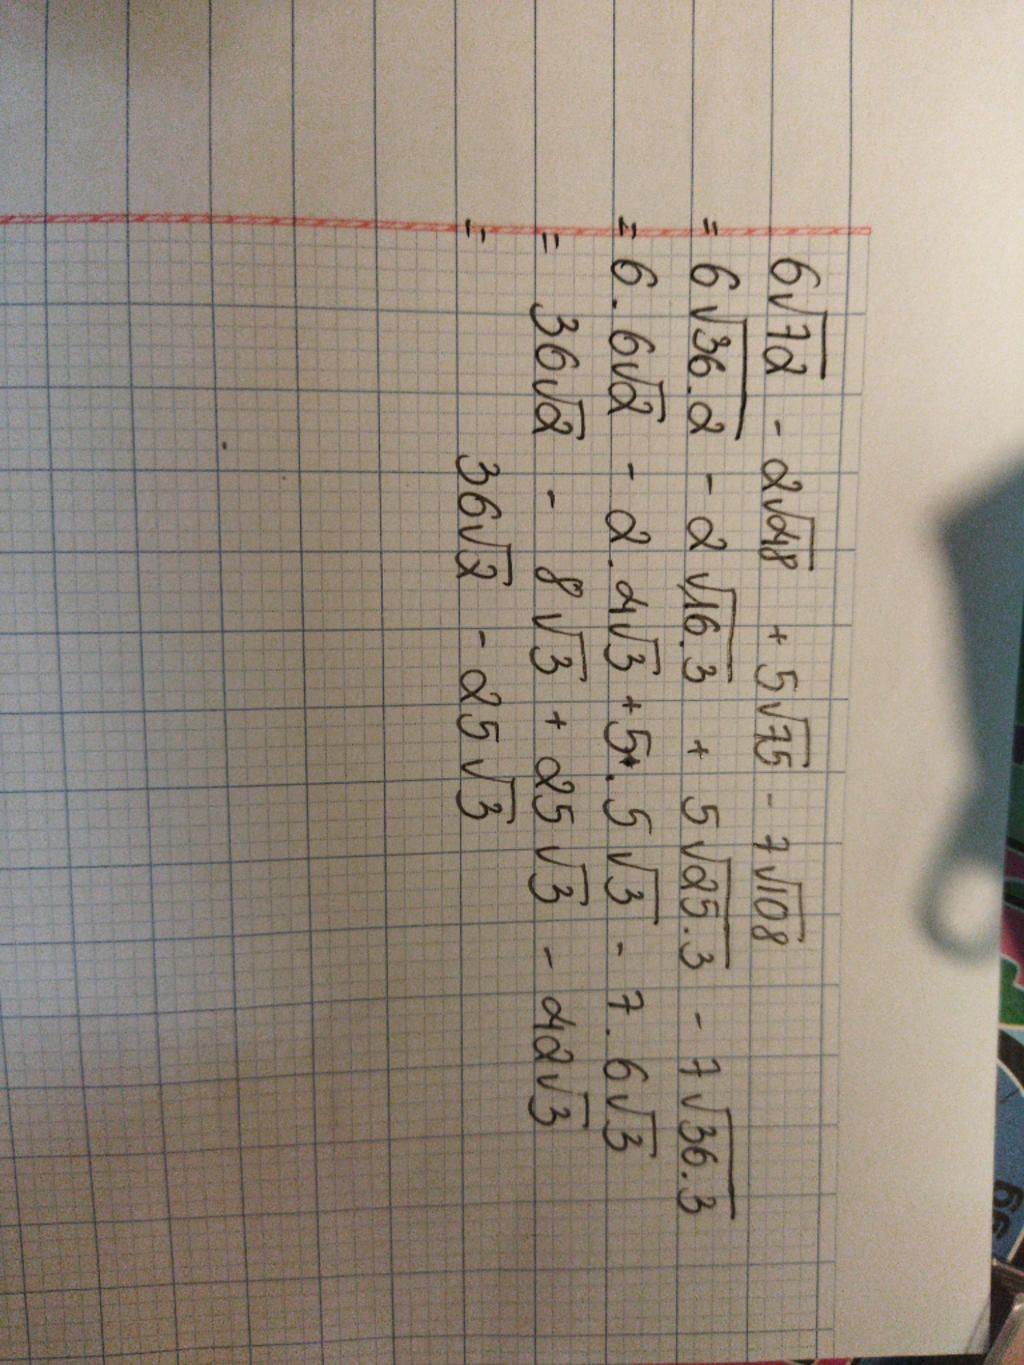 6√72 - 2√48 + 5√75 - 7√108
= 6√36.2 - 2√16.3 + 5√25.3 - 7√36.3
= 6.6√2 - 2.4√3 + 5.5√3 - 7.6√3
= 36√2 - 8√3 + 25√3 - 42√3
= 36√2 - 25√3
99